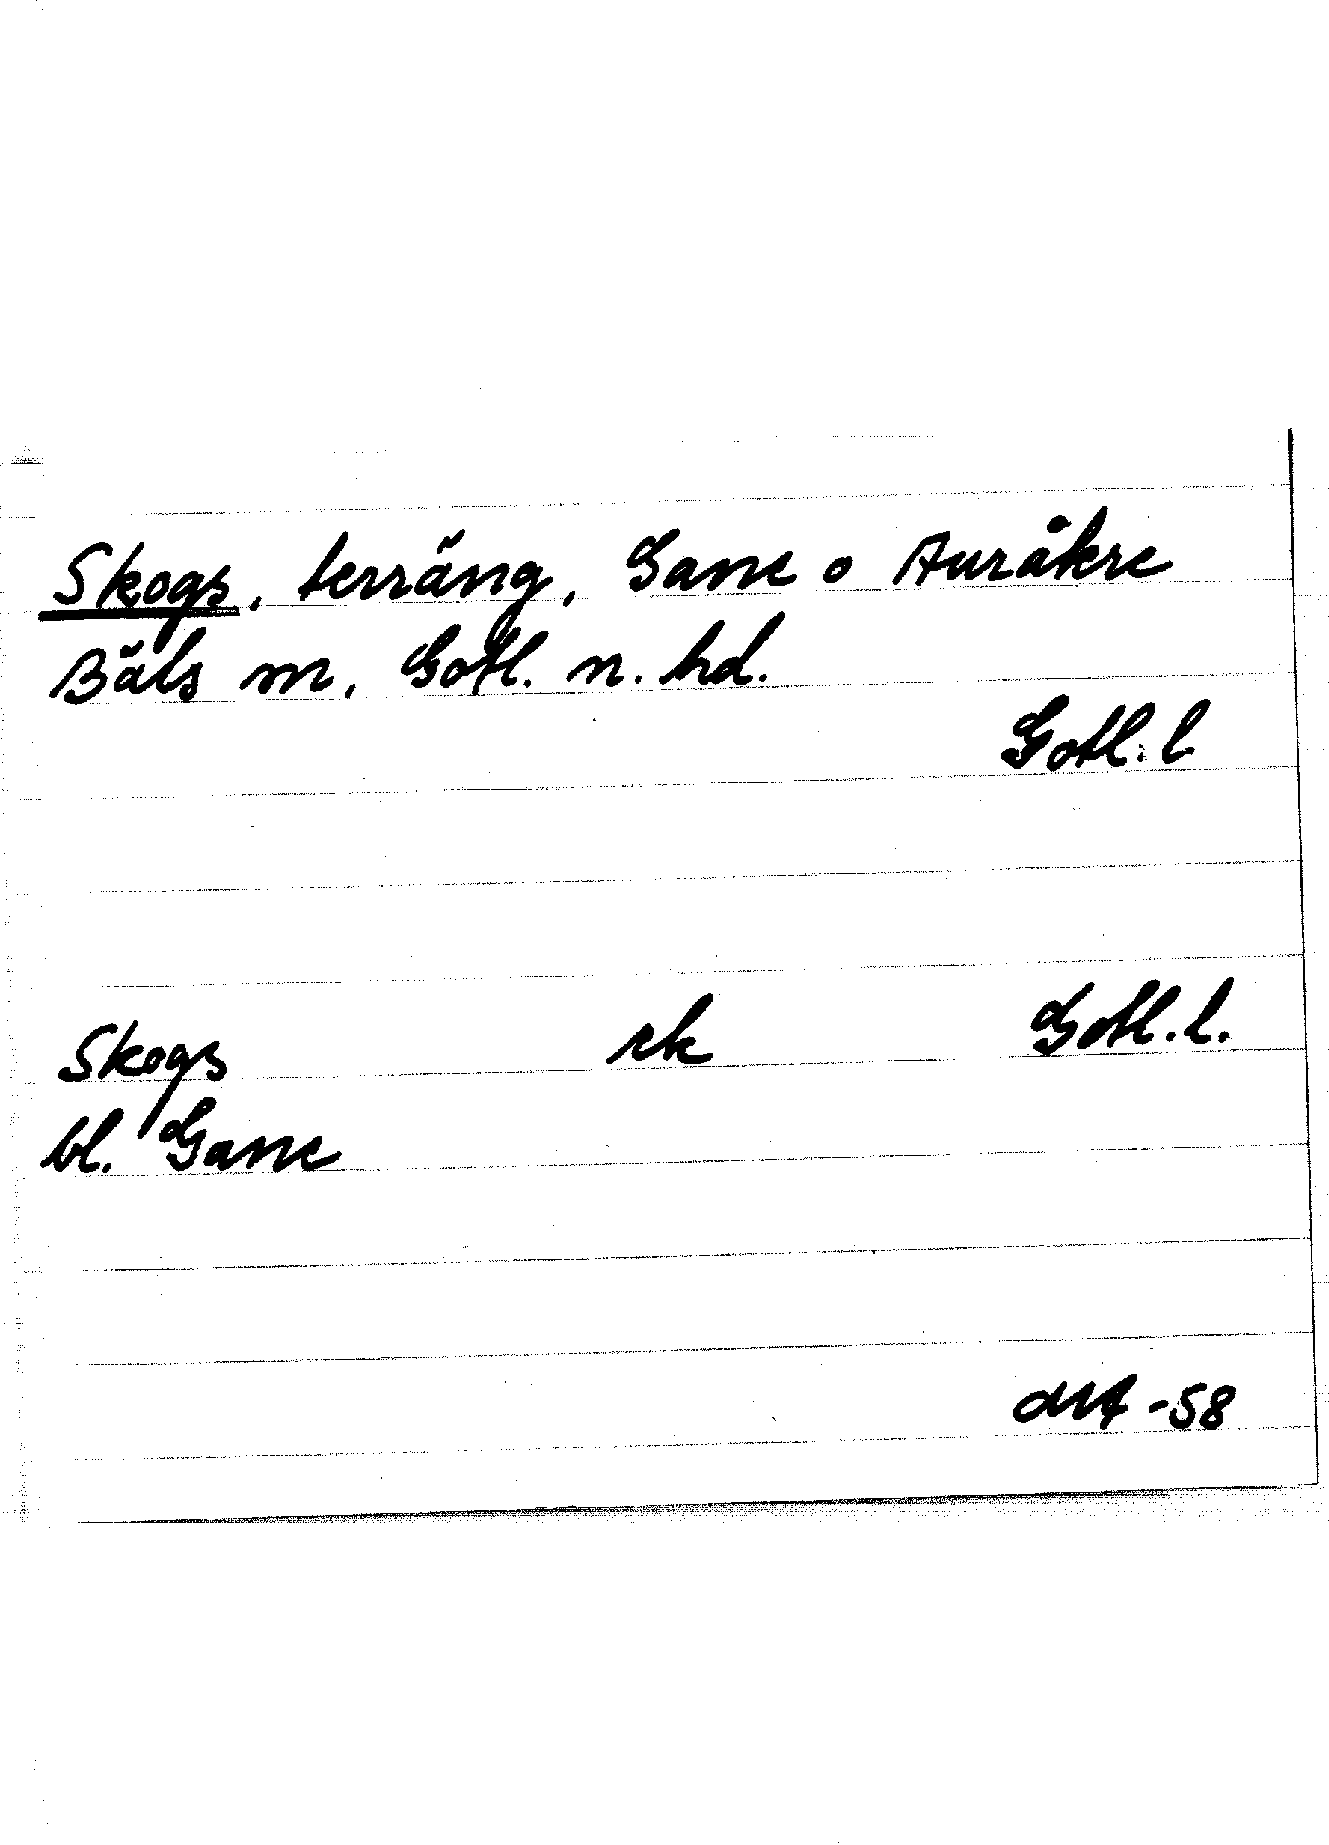 Skogs, terräng, Gane o Auråkre
Bäls m, Gotl. n. hd.
Gotl. l
Skogs ek Gotl. l.
bl. Gane
-58